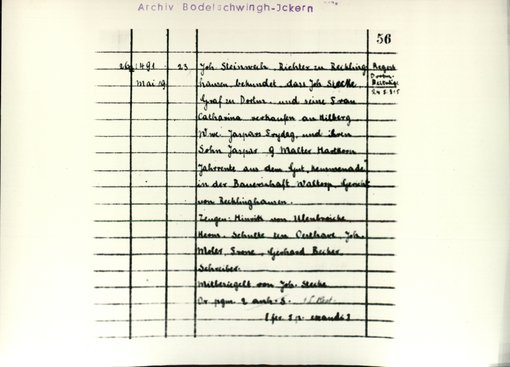 Archiv Bodelschwingh-Ickern
56
1491 23 Joh. Steinweh, Richter zu Reckling- Regest
Mai 19 hausen bekundet, dass Joh. Stecke, Dortm.
Graf zu Dortm. und seine Frau
Catharina verkaufen an Hilberg
Wwe. Jaspars Frydag, und ihren
Sohn Jaspar 9 Malter Hartkorn
Jahrrente aus dem Gut
in der Bauerschaft Waltorp, Gericht
von Recklinghausen.
Zeugen: Hinrik von Ulenbroicke,
Herm. Schulte ten Joh.
Moler, Frone, Gerhard Becker,
Schreiber.
Mitbesiegelt von Joh. Stecke
Or. pgm. 2 anh. S.